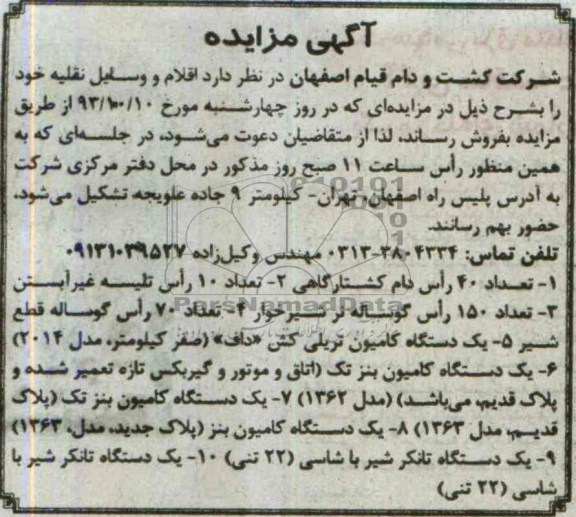 آگهی مزایده
شرکت کشت و دام قیام اصفهان در نظر دارد اقلام و وسایل نقلیه خود
را بشرح ذیل در مزایده‌ای که در روز چهارشنبه مورخ ۹۳/۱۰/۱۰ از طریق
مزایده بفروش رساند، لذا از متقاضیان دعوت می‌شود، در جلسه‌ای که به
همین منظور رأس ساعت ۱۱ صبح روز مذکور در محل دفتر مرکزی شرکت
به آدرس پلیس راه اصفهان، تهران- کیلومتر ۹ جاده علویجه تشکیل می‌شود،
حضور بهم رسانند.
تلفن تماس: ۳۸۰۴۳۳۴-۰۳۱۳ مهندس وکیل‌زاده ۰۹۱۳۱۰۳۹۵۲۷
۱- تعداد ۴۰ رأس دام کشتارگاهی ۲- تعداد ۱۰ رأس تلیسه غیرآبستن
۳- تعداد ۱۵۰ رأس گوساله نر شیرخوار ۴- تعداد ۷۰ رأس گوساله قطع
شیر ۵- یک دستگاه کامیون تریلی کش «داف» (صفر کیلومتر، مدل ۲۰۱۴)
۶- یک دستگاه کامیون بنز تک (اتاق و موتور و گیربکس تازه تعمیر شده و
پلاک قدیم، می‌باشد) (مدل ۱۳۶۲) ۷- یک دستگاه کامیون بنز تک (پلاک
قدیم، مدل ۱۳۶۳) ۸- یک دستگاه کامیون بنز (پلاک جدید، مدل، ۱۳۶۳)
۹- یک دستگاه تانکر شیر با شاسی (۲۲ تنی) ۱۰- یک دستگاه تانکر شیر با
شاسی (۲۲ تنی)
ParsNamadData